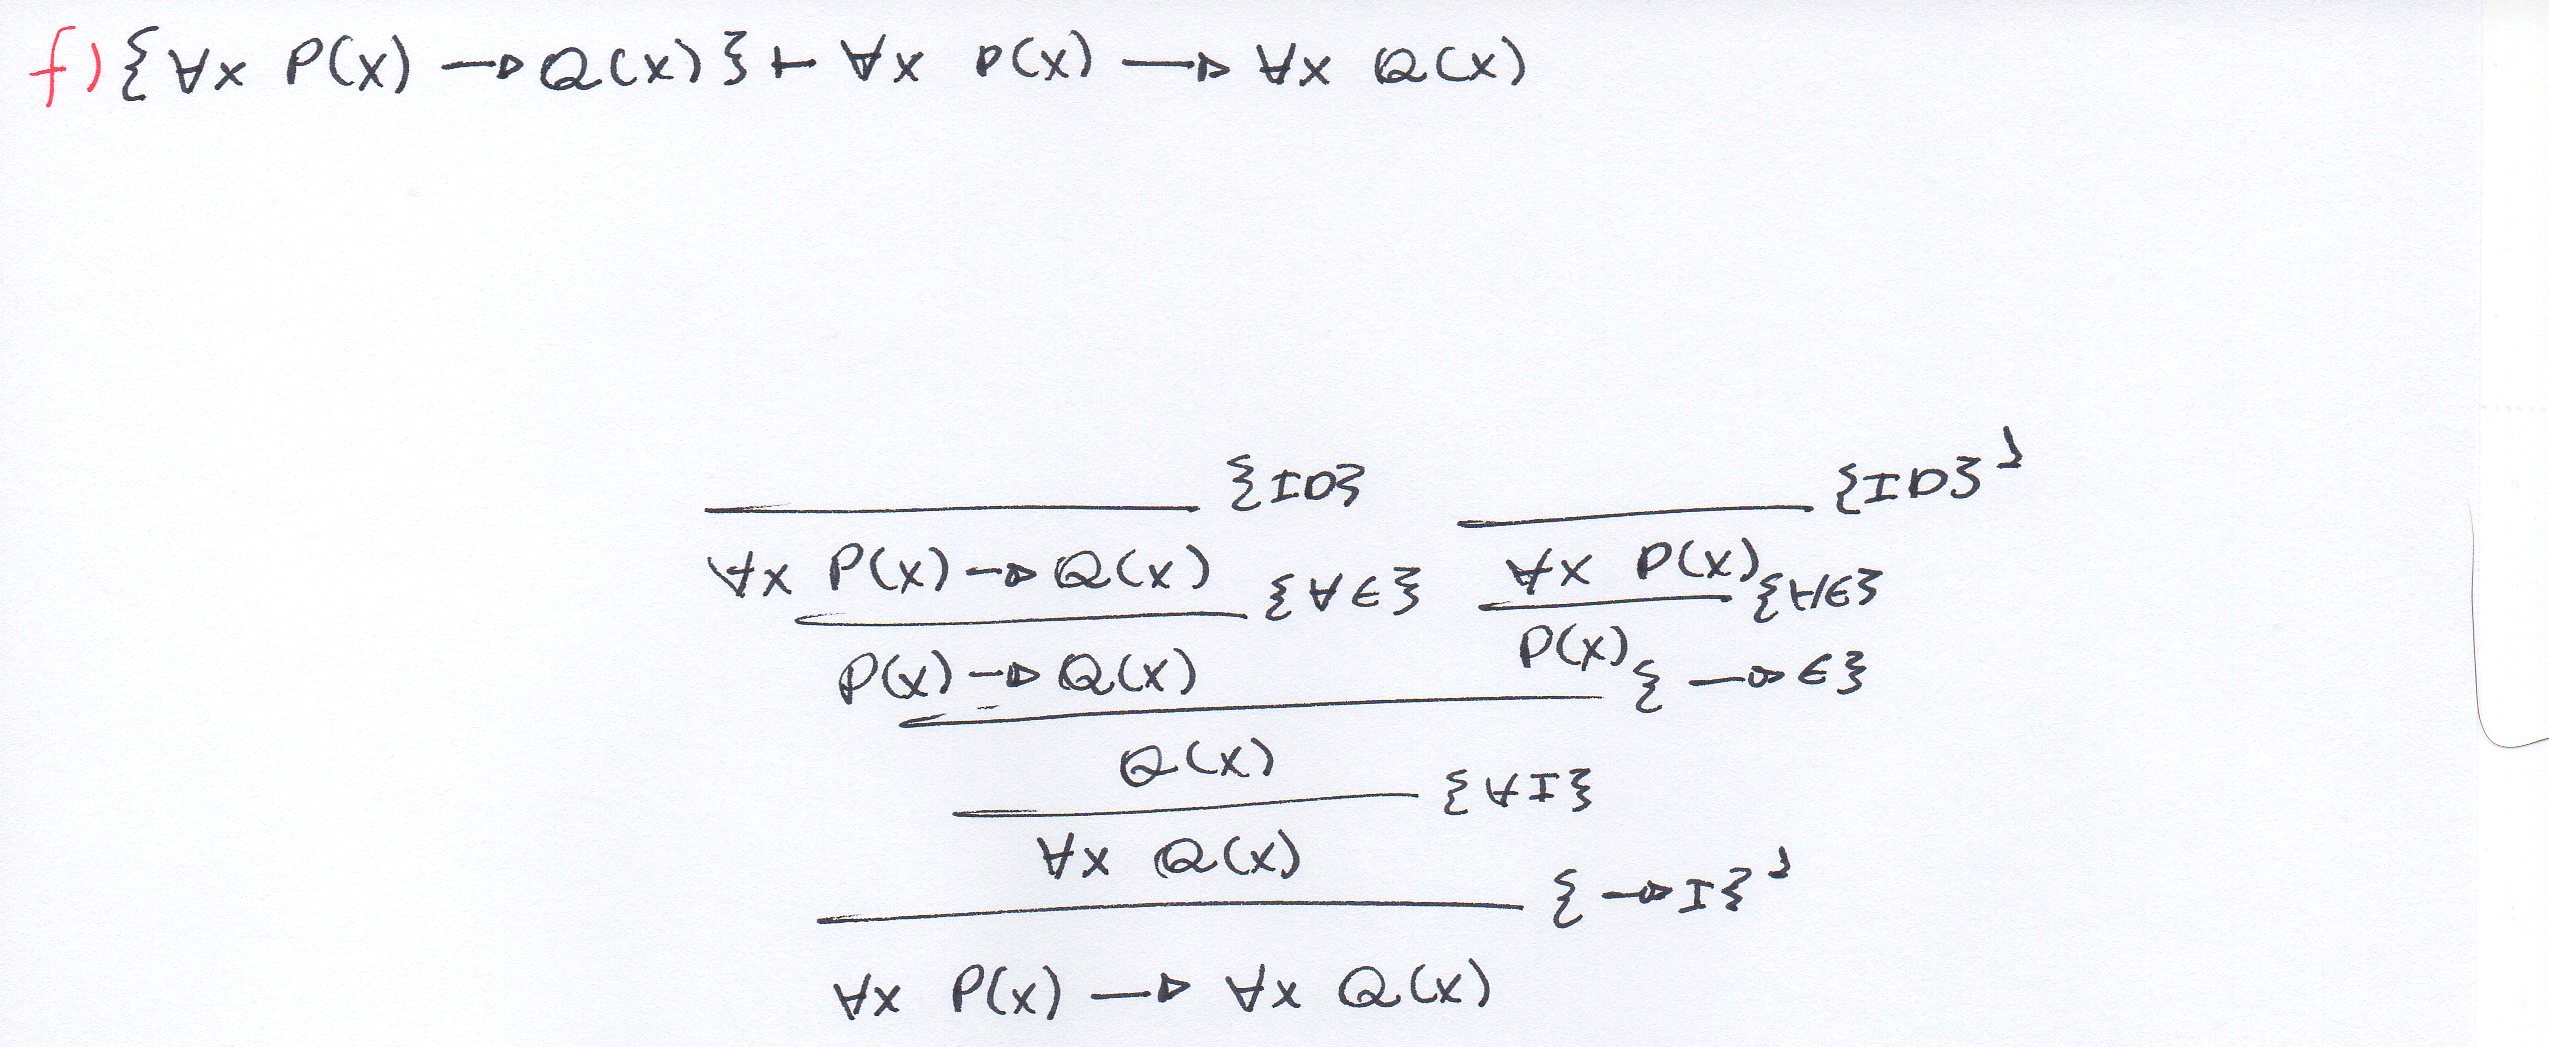 f) {∀x P(x) → Q(x)} ⊢ ∀x P(x) → ∀x Q(x)
{ID} {ID}¹
∀x P(x) → Q(x) {∀E} ∀x P(x) {∀E}
P(x) → Q(x) P(x) {→E}
Q(x) {∀I}
∀x Q(x) {→I}¹
∀x P(x) → ∀x Q(x)